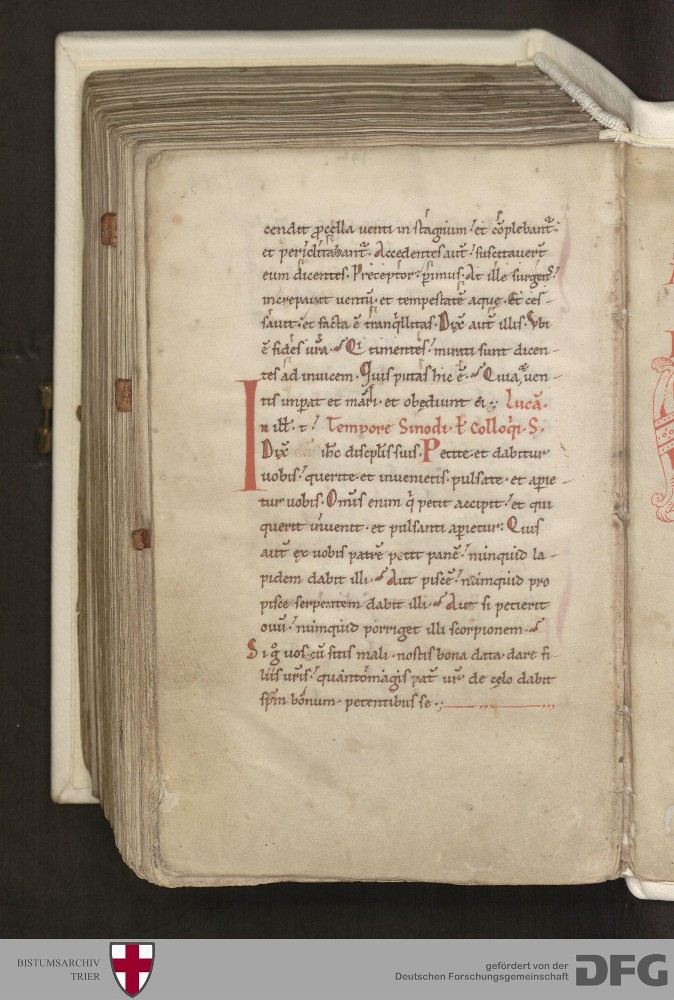 cendit p̱cella uenti in stagnum! et c̄plebant᷑.
et periclitabant᷑. Accedentes aut̄! suscitauer̄t
eum dicentes. Preceptor! p̱imus. At ille surgens!
increpauit uentū. et tempestatē aque. Et ces-
sauit. et facta ē tranq̇llitas. Dix̄ aut̄ illis. Vbi
ē fides ur̄a. Qi timentes! mirati sunt dicen-
tes ad inuicem. Quis putas hic ē. Quia uen-
tis imp̱at et mari. et obędiunt ei. Lucā.
In ill. t! Tempore Sinodi. ł Colloq̇i. S.
Dix̄ ih̄c discip̄lis suis. Petite et dabitur
uobis! querite et inuenietis. pulsate. et ap̱ie-
tur uobis. Om̄is enim q̇ petit accipit! et qui
querit inuenit. et pulsanti ap̱ietur. Quis
aut̄ ex uobis patrē petit panē! nunquid la-
pidem dabit illi. Aut piscē! nunquid pro
pisce serpentem dabit illi. Aut si petierit
ouū! nunquid porriget illi scorpionem.
Si g̊ uos cū sitis mali. nostis bona data dare fi-
liis ur̄is! quantomagis pat̄ ur̄ de cęlo dabit
sp̄m bonum. petentibus se.
BISTUMSARCHIV
TRIER
gefördert von der
Deutschen Forschungsgemeinschaft
DFG